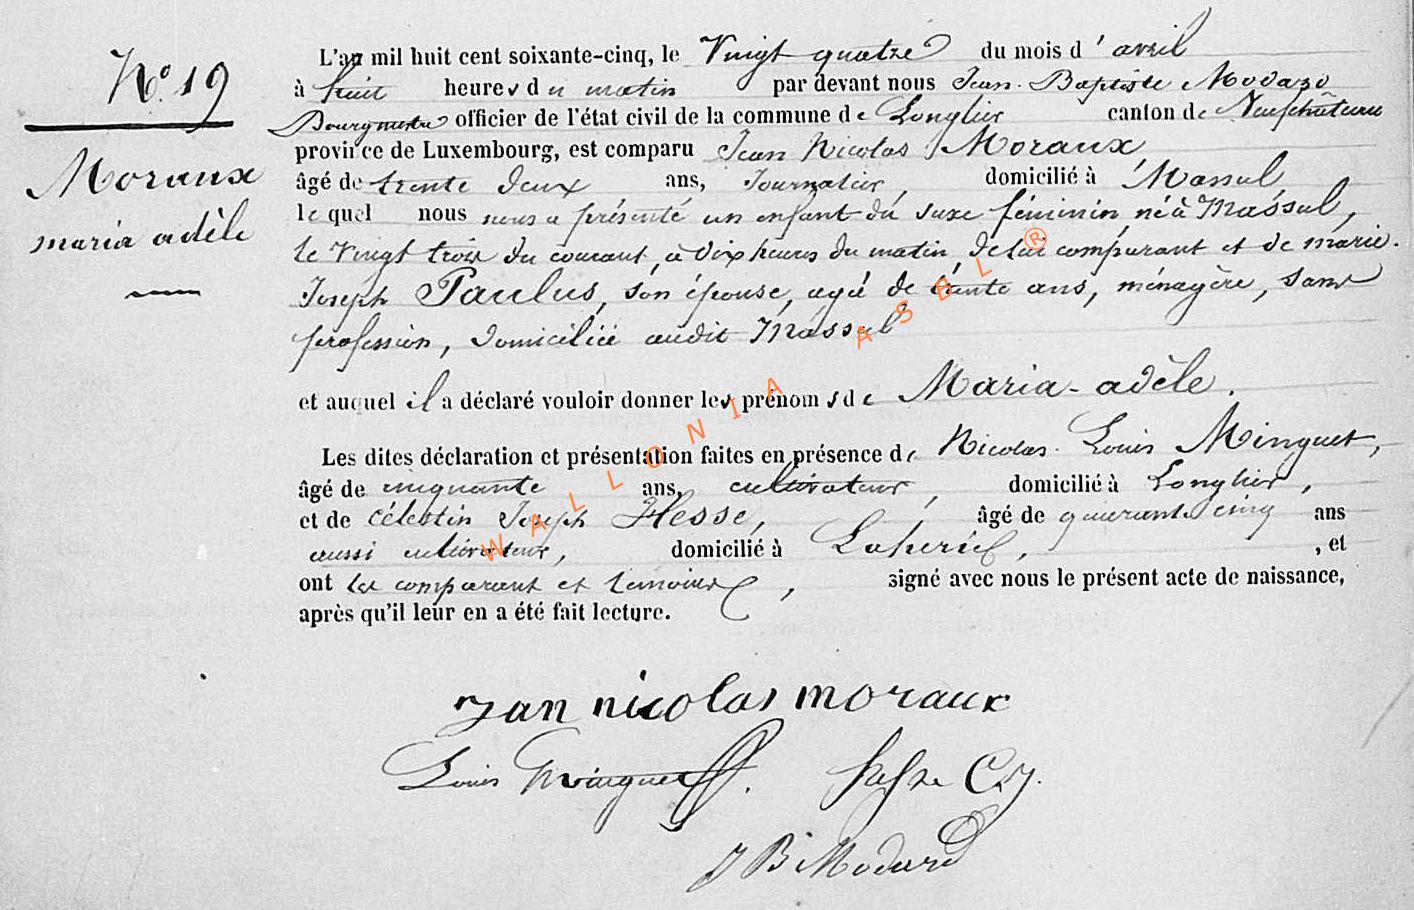 N° 19
Moraux
maria adèle
L'an mil huit cent soixante-cinq, le Vingt quatre du mois d'avril
à huit heures du matin par devant nous Jean-Baptiste Modard
Bourgmestre officier de l'état civil de la commune de Longlier canton de Neufchâteau
province de Luxembourg, est comparu Jean Nicolas Moraux
âgé de trente deux ans, Journalier, domicilié à Massul
lequel nous nous a présenté un enfant du sexe féminin, né à Massul,
le Vingt trois du courant, à dix heures du matin, de lui comparant et de marie.
Joseph Paulus, son épouse, agée de trente ans, ménagère, sans
profession, domiciliée audit Massul
et auquel il a déclaré vouloir donner les prénoms de Maria-adèle.
Les dites déclaration et présentation faites en présence de Nicolas Louis Minguet,
âgé de cinquante ans, cultivateur, domicilié à Longlier,
et de célestin Joseph Hesse, âgé de quarante cinq ans
aussi cultivateur, domicilié à Laherie, , et
ont les comparant et temoins, signé avec nous le présent acte de naissance,
après qu'il leur en a été fait lecture.
Jan nicolas moraux
Louis Minguet. Hesse C. J.
J B Modard
WALLONIA ASBL ®